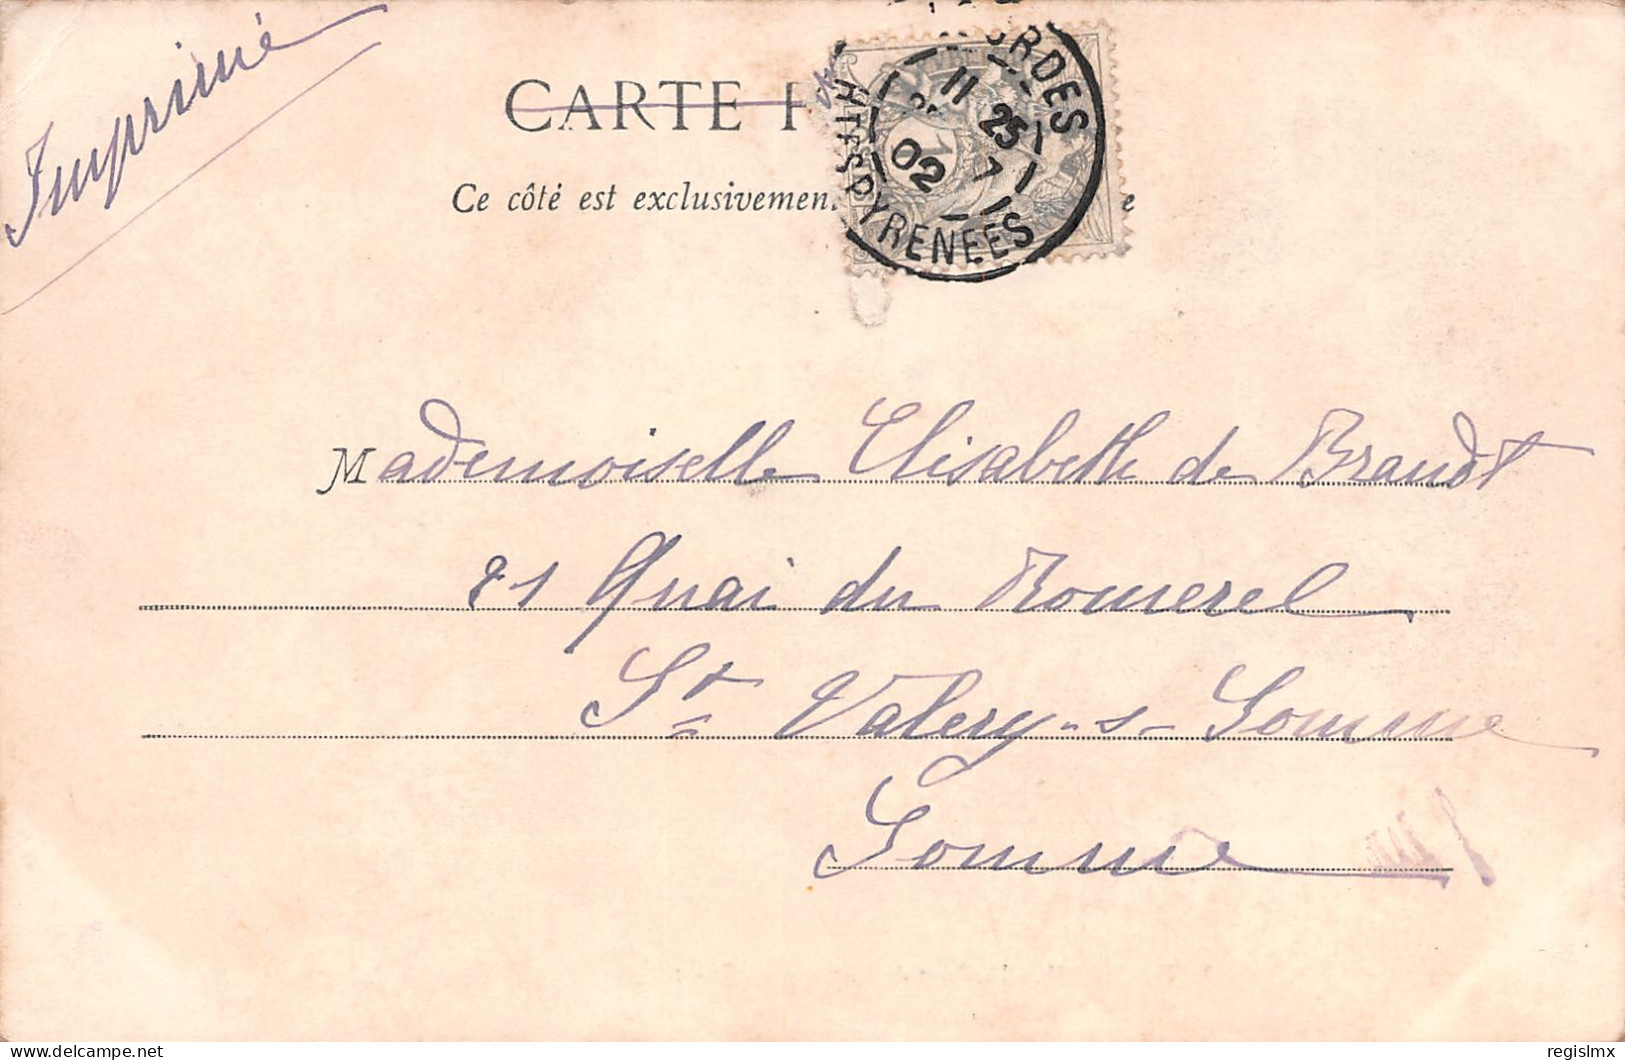 Imprimé
CARTE
Ce côté est exclusivemen
RDES
11
25
7
02
HTES PYRENÉES
Mademoiselle Elisabeth de Brandt
21 Quai du Romerel
St Valery-s-Somme
Somme
delcampe.net
regislmx